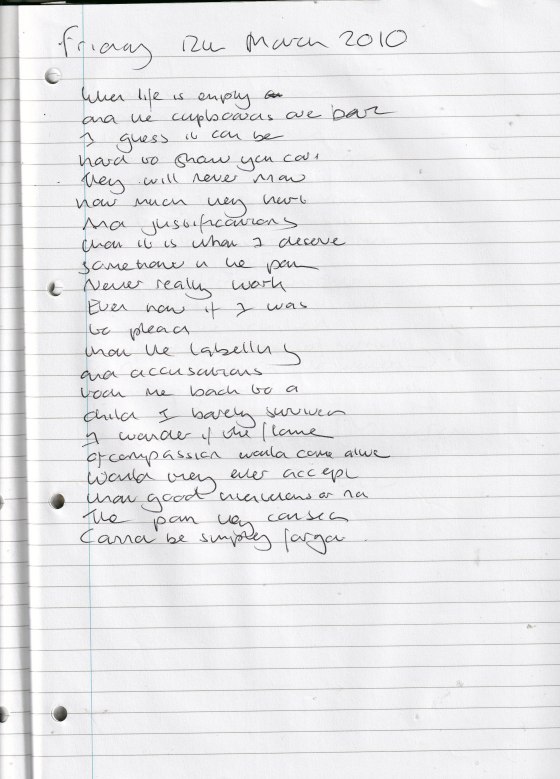 Friday 12th March 2010
When life is empty
and the cupboards are bare
I guess it can be
hard to show you care
They will never know
how much they hurt
And justifications
that it is what I deserve
somehow in the pain
Never really work
Even now if I was
to plead
that the labelling
and accusations
took me back to a
child I barely survived
I wonder if the flame
of compassion would come alive
Would they ever accept
that good intentions or no
The pain they caused
Cannot be simply forgot.